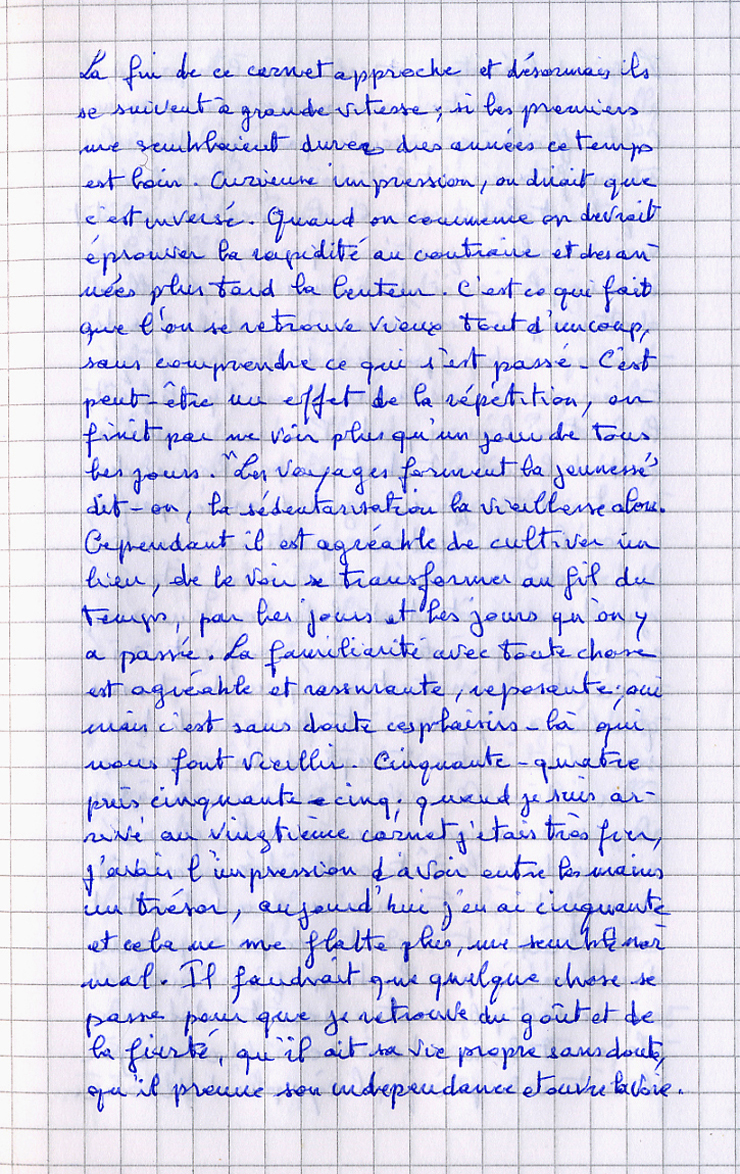 La fin de ce carnet approche et désormais ils
se suivent à grande vitesse ; si les premiers
me semblaient durer des années ce temps
est loin. Curieuse impression, on dirait que
c'est inversé. Quand on commence on devrait
éprouver la rapidité au contraire et des an-
nées plus tard la lenteur. C'est ce qui fait
que l'on se retrouve vieux tout d'un coup,
sans comprendre ce qui s'est passé - C'est
peut-être un effet de la répétition, on
finit par ne voir plus qu'un jour de tous
les jours. "Les voyages forment la jeunesse"
dit-on, la sédentarisation la vieillesse alors.
Cependant il est agréable de cultiver un
lieu, de le voir se transformer au fil du
temps, par les jours et les jours qu'on y
a passé. La familiarité avec toute chose
est agréable et rassurante, reposante ; oui
mais c'est sans doute ces plaisirs-là qui
nous font vieillir. Cinquante-quatre
puis cinquante-cinq ; quand je suis ar-
rivé au vingtième carnet j'étais très fier,
j'avais l'impression d'avoir entre les mains
un trésor, aujourd'hui j'en ai cinquante
et cela ne me flatte plus, me semble nor-
mal. Il faudrait que quelque chose se
passe pour que je retrouve du goût et de
la fierté, qu'il ait sa vie propre sans doute,
qu'il prenne son indépendance et ouvre la voie.